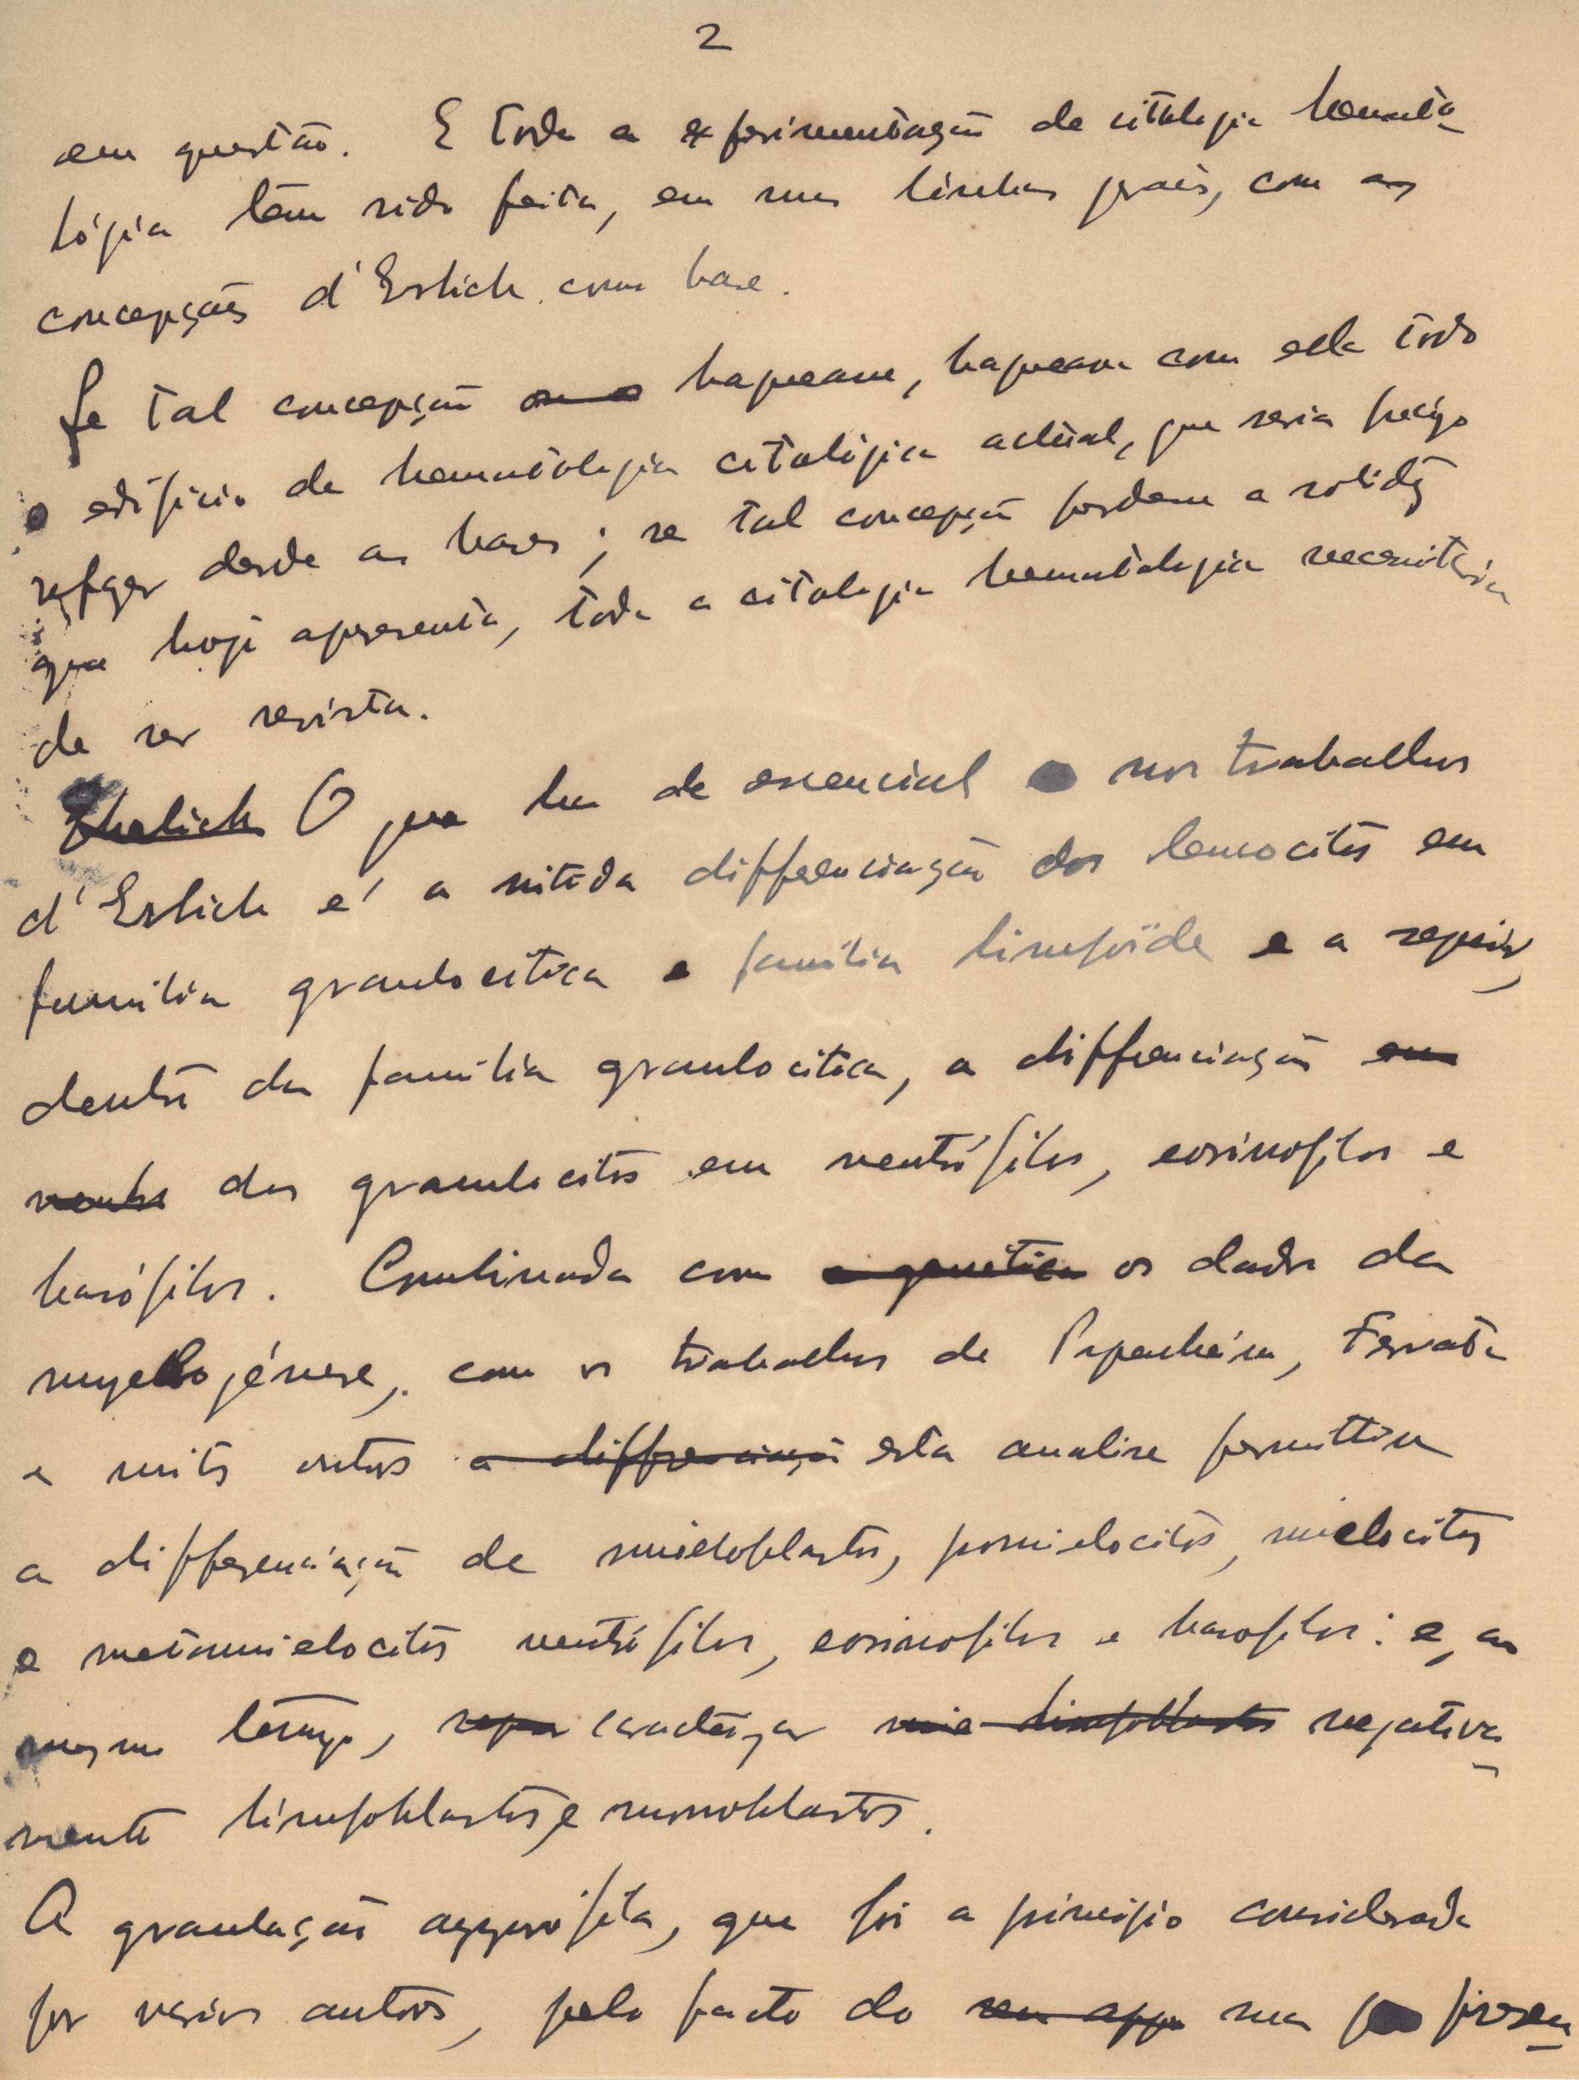 2
em questão. E toda a experimentação de citologia hemato-
lógica tem sido feita, em suas linhas gerais, com as
concepções d'Erlich como base.
Se tal concepção baqueasse, baqueava com ella todo
o edificio da hematologia citológica actual, que seria preciso
refazer desde as bases; se tal concepção perdesse a solidez
que hoje apresenta, toda a citologia hematologia necessitaria
de ser revista.
Ehrlich O que ha de essencial nos trabalhos
d'Erlich é a nitida differenciação dos leucocitos em
familia granulocitica e familia linfoïde e a seguir,
dentro da familia granulocitica, a differenciação em
neutro dos granulocitos em neutrófilos, eosinofilos e
basófilos. Combinada com a genética os dados da
myelogénese, com os trabalhos de Papenheim, Ferrata
e muitos outros a differenciação esta analise permittiu
a differenciação de mieloblastos, promielocitos, mielocitos
e metamielocitos neutrófilos, eosinofilos e basofilos: e, ao
mesmo tempo, separar caracterizar linfoblastos negativa-
mente linfoblastos e monoblastos.
A granulação azzurófila, que foi a principio considerada
por varios autores, pelo facto do seu sua presen-